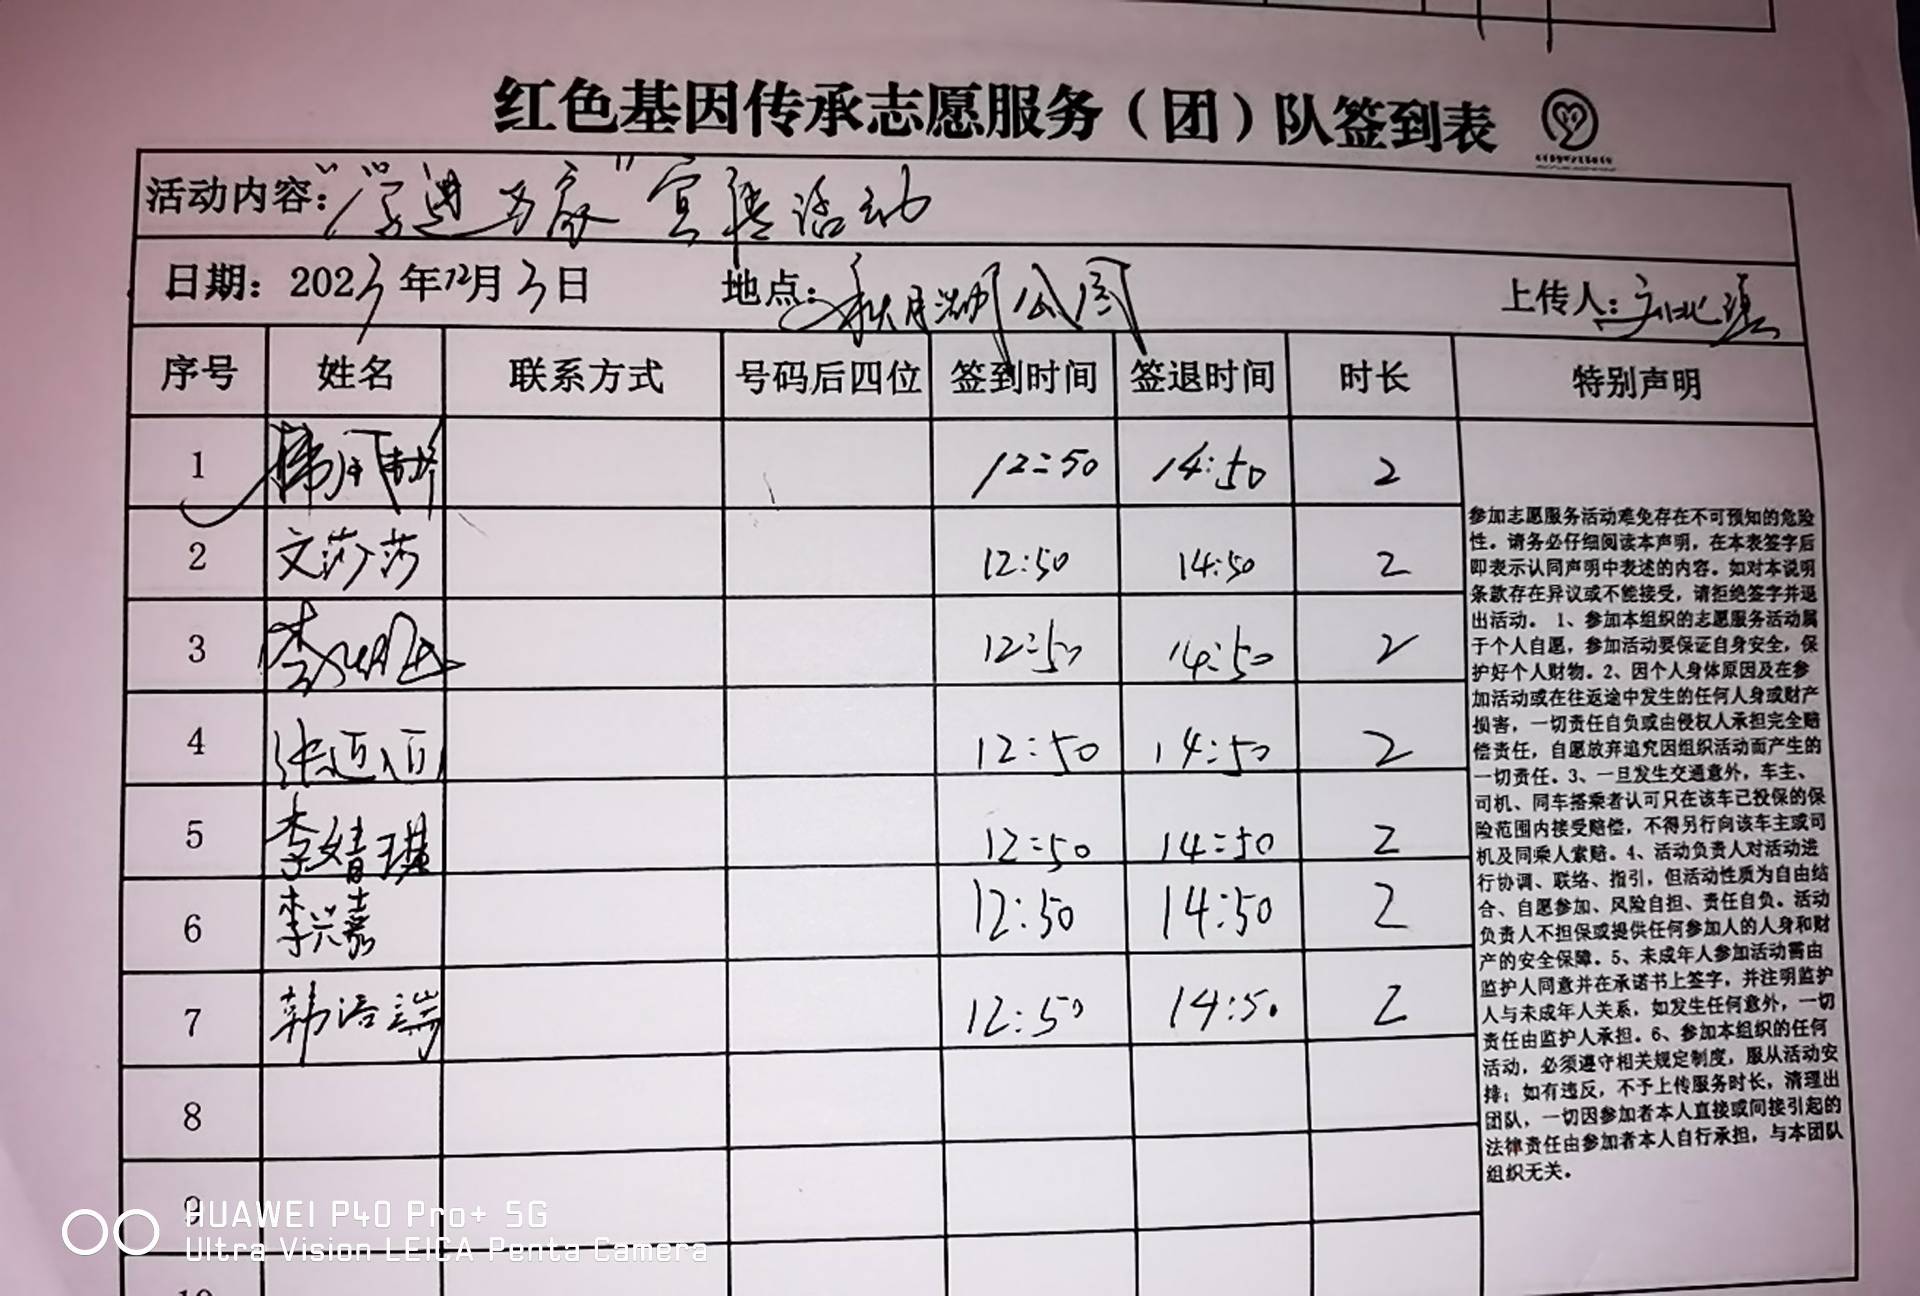 红色基因传承志愿服务（团）队签到表
活动内容：“学进万家”宣传活动
日期：2023年12月3日 地点：秋月湖公园 上传人：
序号 姓名 联系方式 号码后四位 签到时间 签退时间 时长 特别声明
1 12:50 14:50 2
2 文莎莎 12:50 14:50 2
3 李 12:50 14:50 2
4 张 12:50 14:50 2
5 李婧琪 12:50 14:50 2
6 李兴嘉 12:50 14:50 2
7 韩语端 12:50 14:50 2
8
9
10
参加志愿服务活动难免存在不可预知的危险
性。请务必仔细阅读本声明，在本表签字后
即表示认同声明中表述的内容。如对本说明
条款存在异议或不能接受，请拒绝签字并退
出活动。 1、参加本组织的志愿服务活动属
于个人自愿，参加活动要保证自身安全，保
护好个人财物。2、因个人身体原因及在参
加活动或在往返途中发生的任何人身或财产
损害，一切责任自负或由侵权人承担完全赔
偿责任，自愿放弃追究因组织活动而产生的
一切责任。3、一旦发生交通意外，车主、
司机、同车搭乘者认可只在该车已投保的保
险范围内接受赔偿，不得另行向该车主或司
机及同乘人索赔。4、活动负责人对活动进
行协调、联络、指引，但活动性质为自由结
合、自愿参加、风险自担、责任自负。活动
负责人不担保或提供任何参加人的人身和财
产的安全保障。5、未成年人参加活动需由
监护人同意并在承诺书上签字，并注明监护
人与未成年人关系，如发生任何意外，一切
责任由监护人承担。6、参加本组织的任何
活动，必须遵守相关规定制度，服从活动安
排；如有违反，不予上传服务时长，清理出
团队，一切因参加者本人直接或间接引起的
法律责任由参加者本人自行承担，与本团队
组织无关。
HUAWEI P40 Pro+ 5G
Ultra Vision LEICA Penta Camera